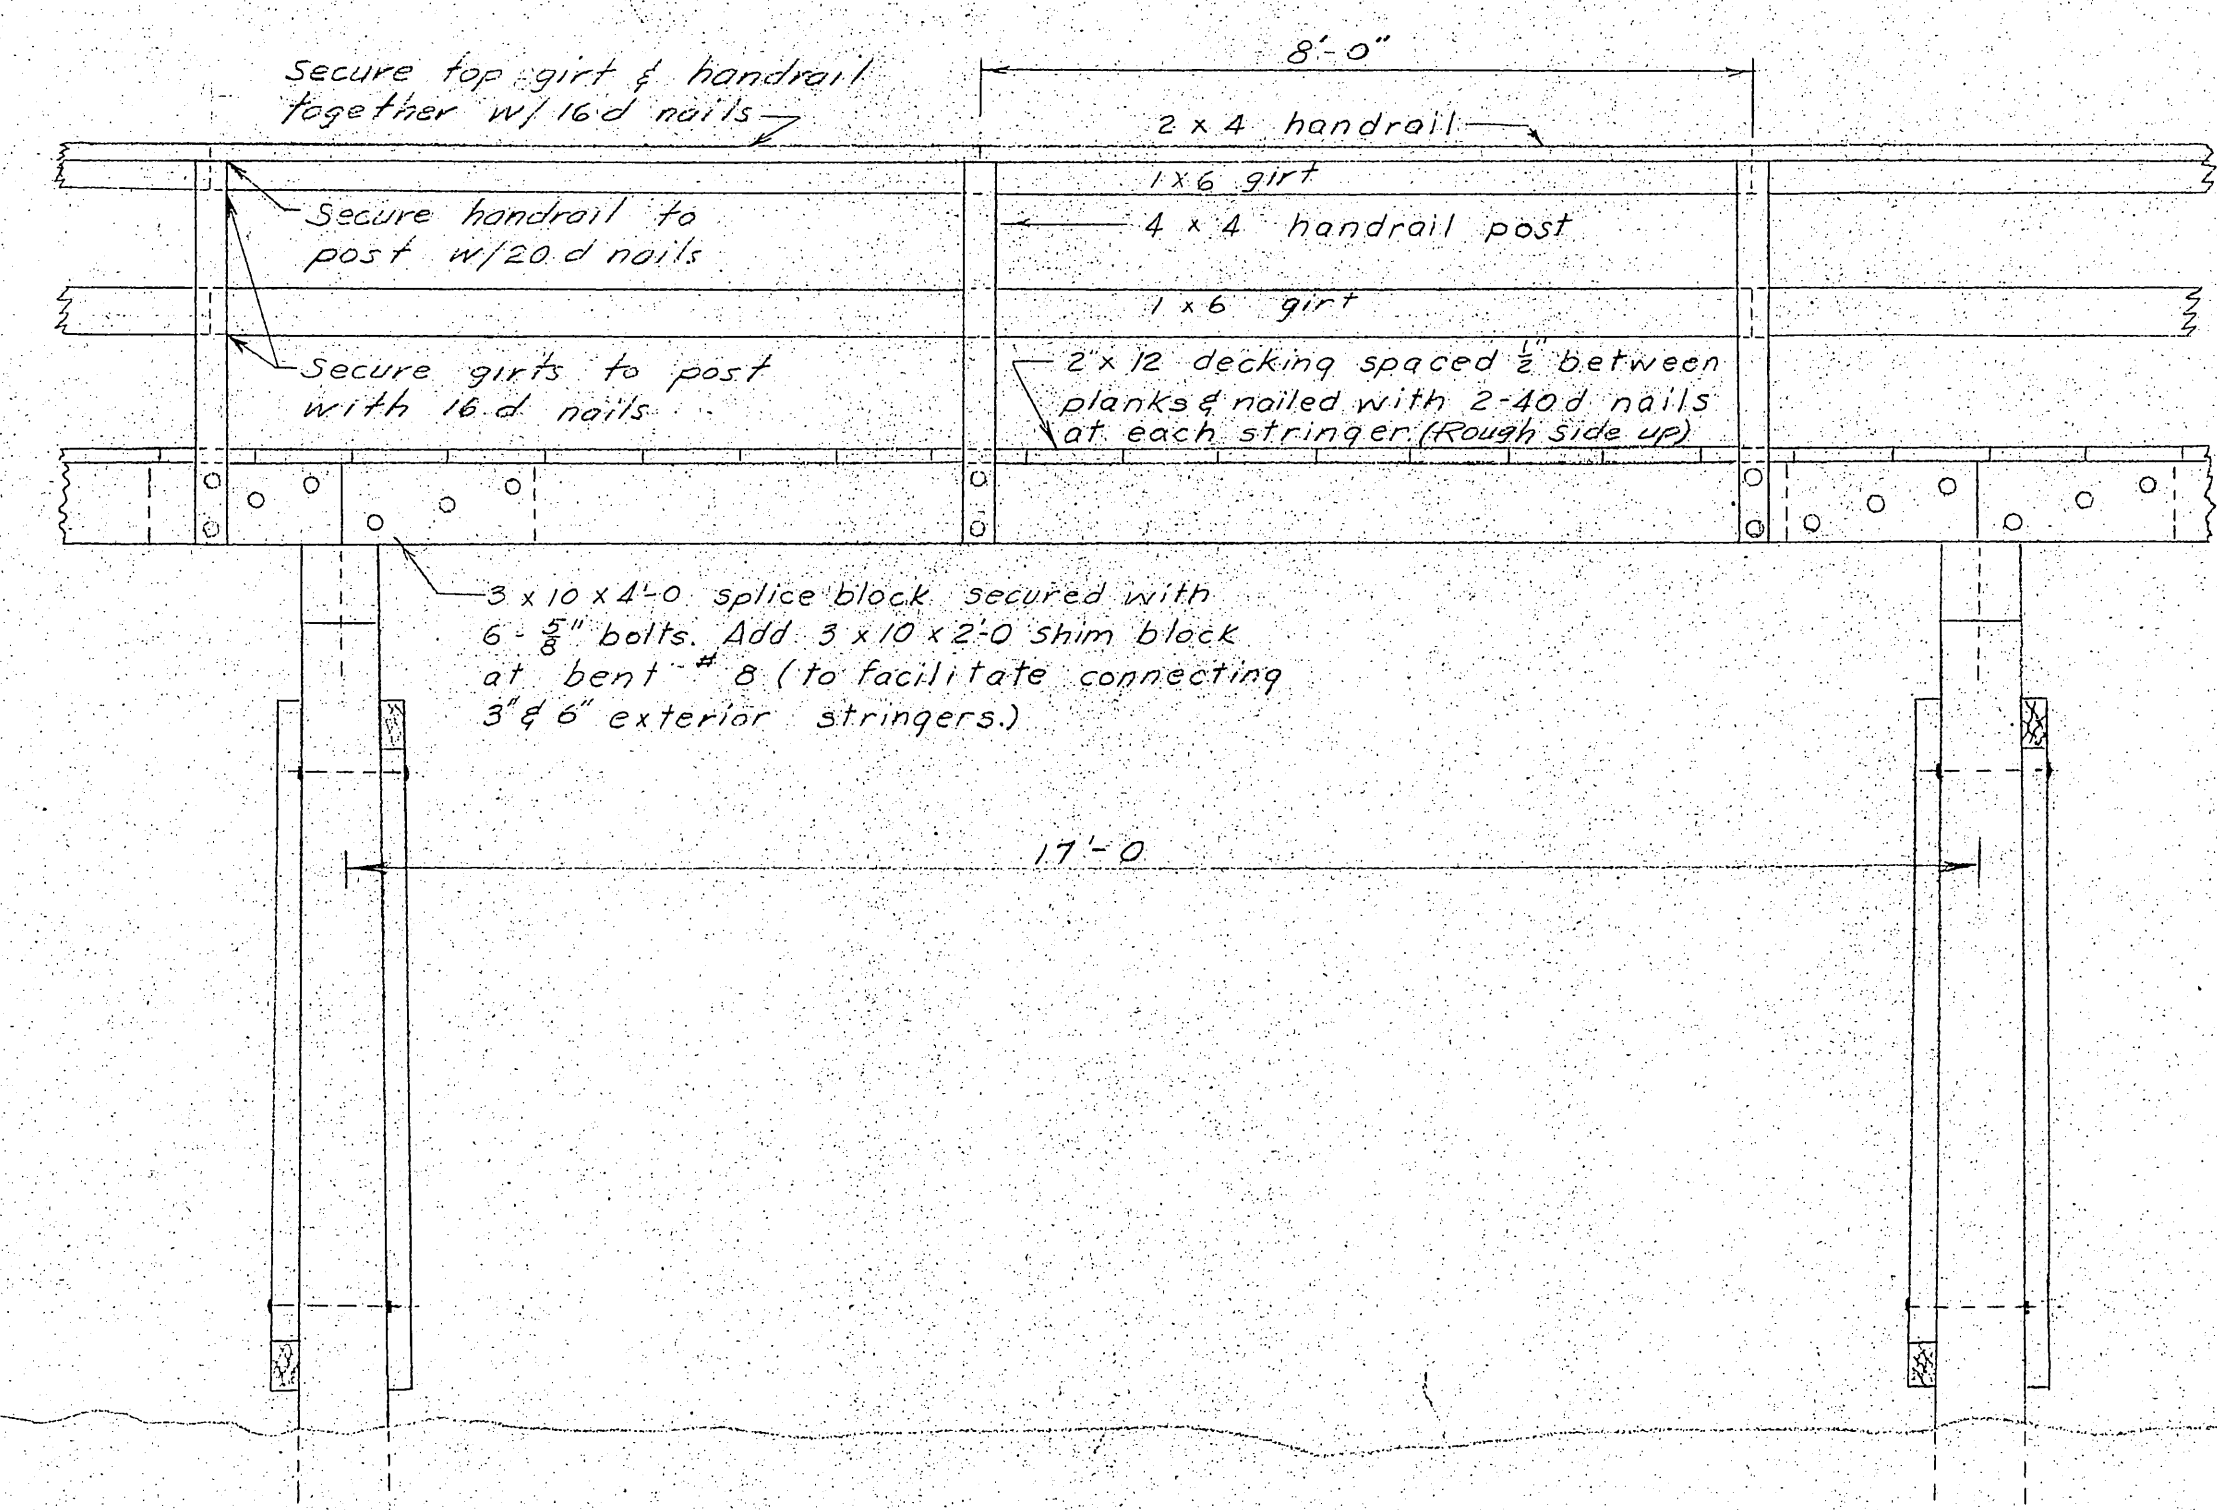 8'-0"
Secure top girt & handrail
together w/ 16 d nails
2 x 4 handrail
1 x 6 girt
Secure handrail to
post w/20 d nails
4 x 4 handrail post
1 x 6 girt
Secure girts to post
with 16 d nails
2" x 12 decking spaced 1/2" between
planks & nailed with 2-40 d nails
at each stringer. (Rough side up)
3 x 10 x 4'-0 splice block secured with
6 - 5/8" bolts. Add 3 x 10 x 2'-0 shim block
at bent # 8 (to facilitate connecting
3" & 6" exterior stringers.)
17'-0